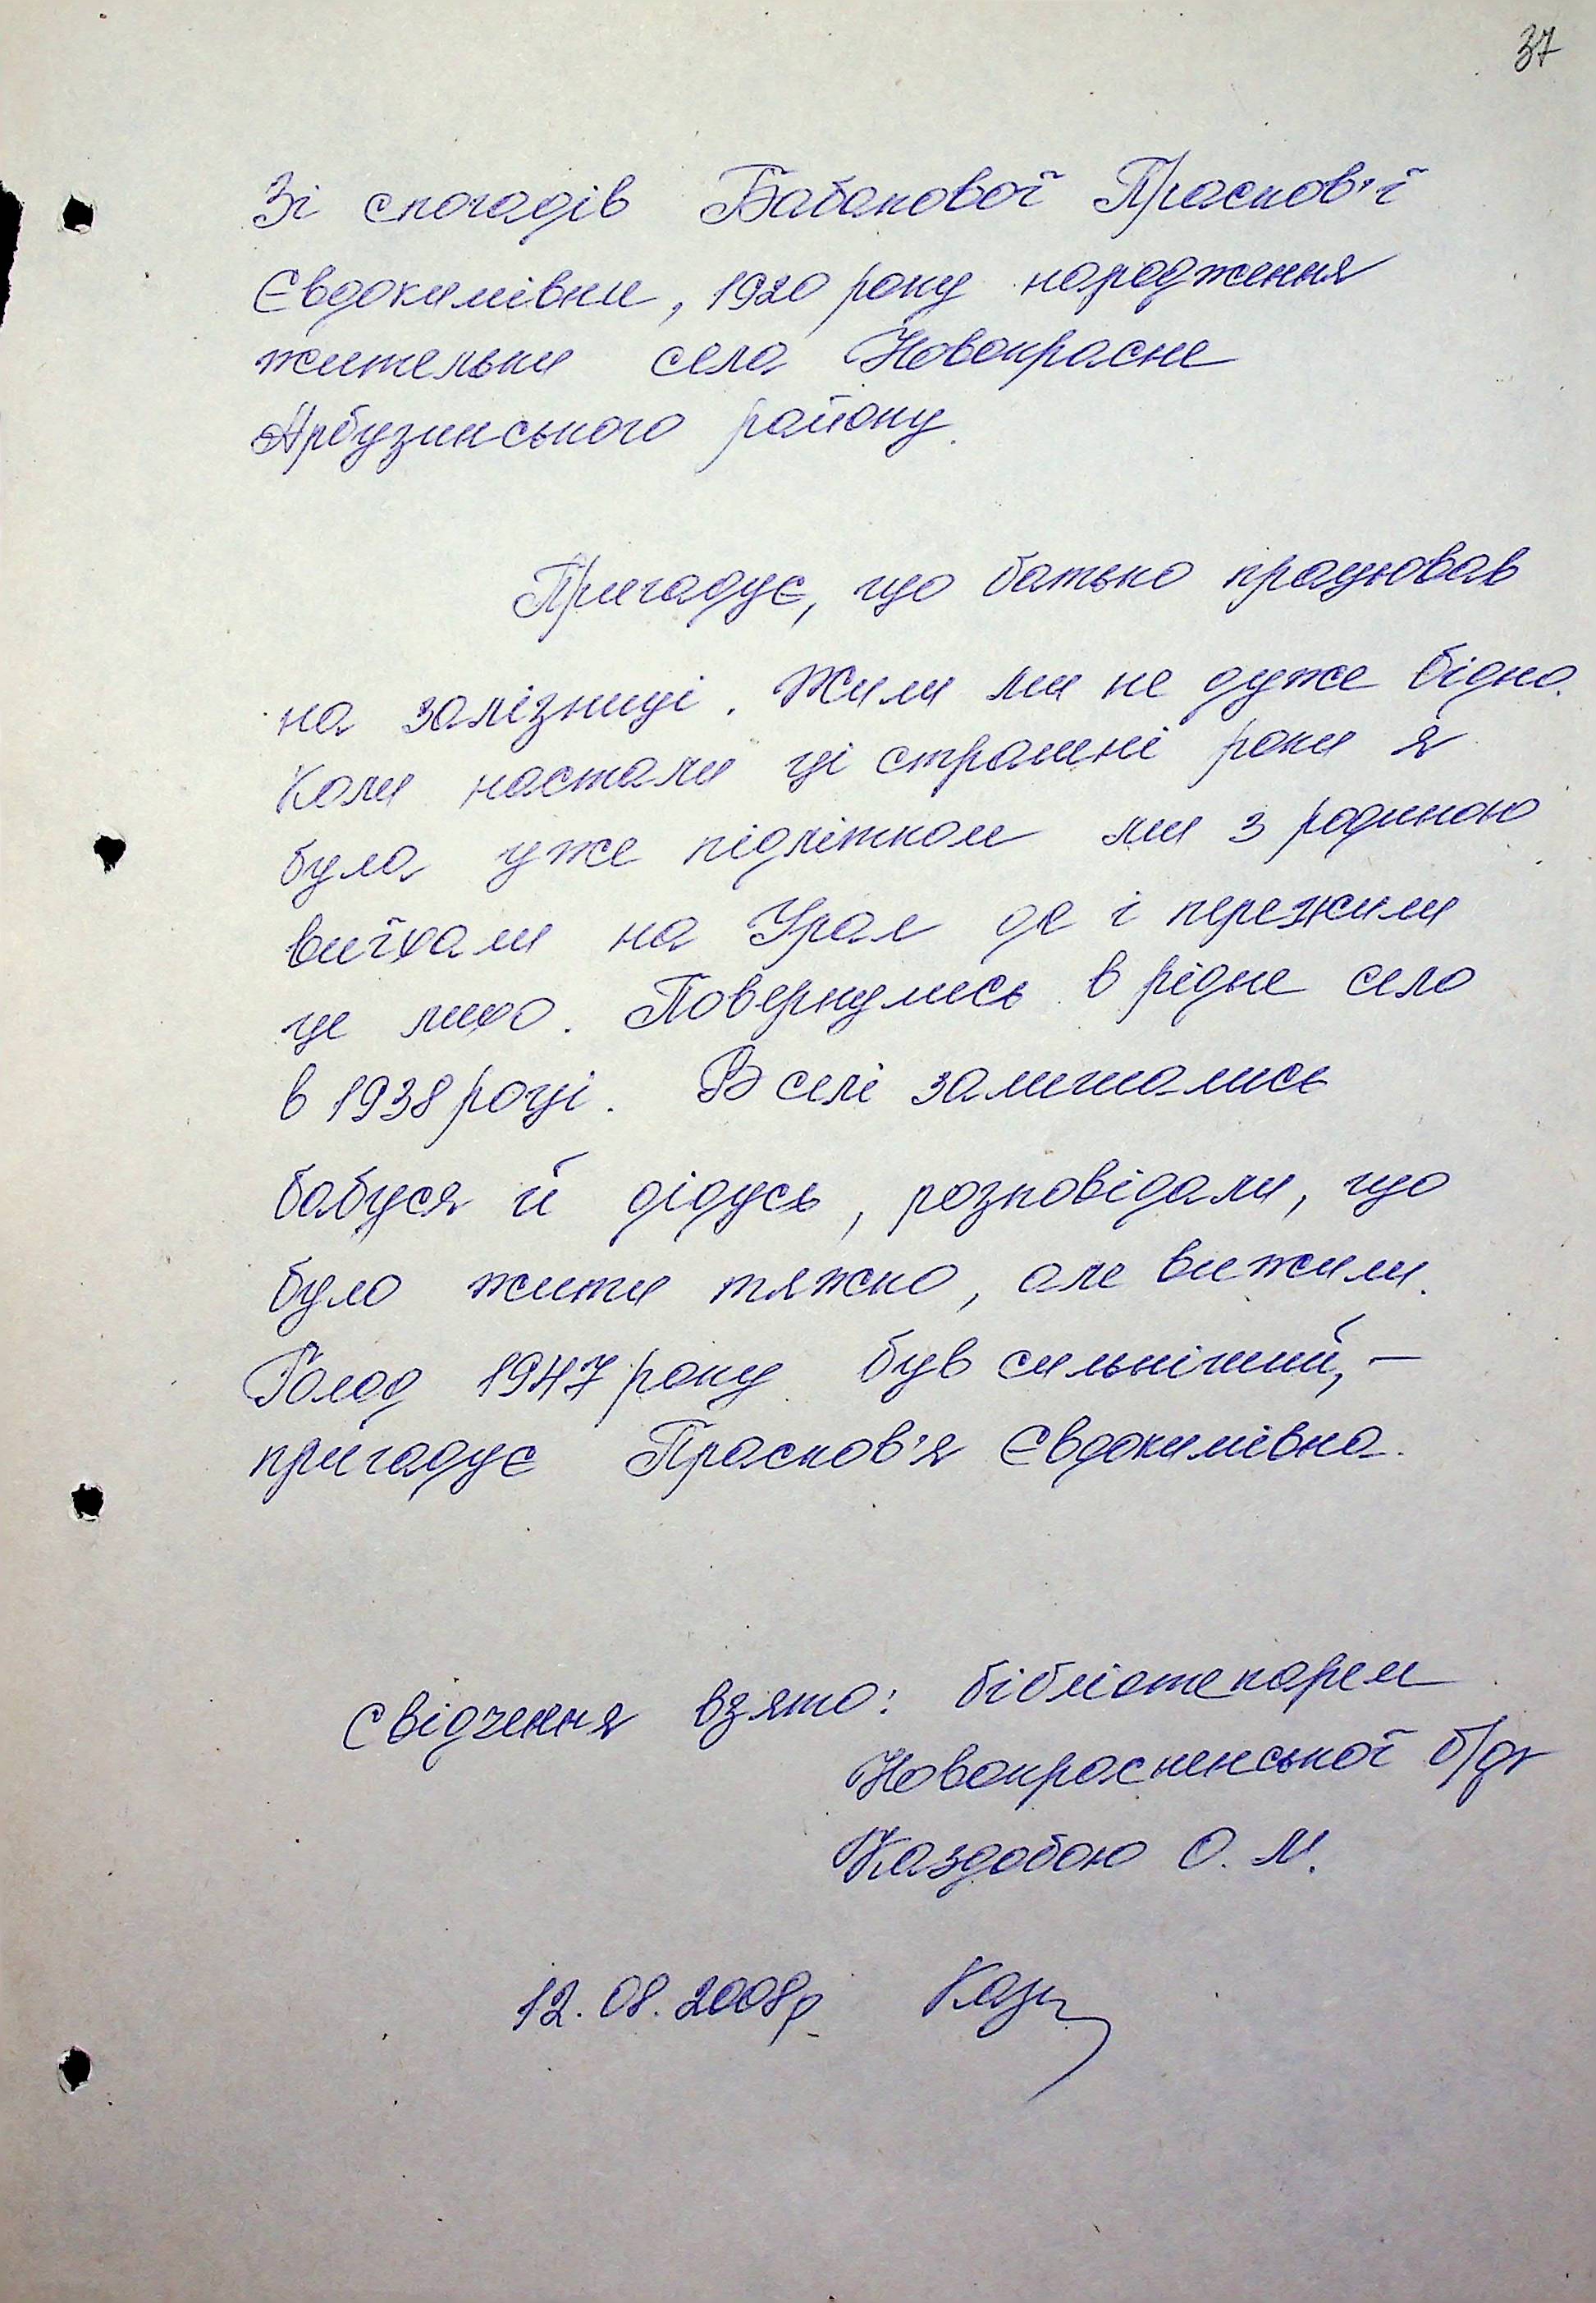 37
Зі спогадів Бабакової Прасков'ї
Євдокимівни, 1920 року народження
жительки села Новокрасне
Арбузинського району.
Пригадує, що батько працював
на залізниці. Жили ми не дуже бідно.
Коли настали ці страшні роки я
була уже підлітком ми з родиною
виїхали на Урал де і пережили
це лихо. Повернулись в рідне село
в 1938 році. В селі залишались
бабуся й дідусь, розповідали, що
було жити тяжко, але вижили.
Голод 1947 року був сильніший, –
пригадує Прасков'я Євдокимівна.
Свідчення взято: бібліотекарем
Новокрасненської б/ф
Каздобою О. М.
12.08.2008р